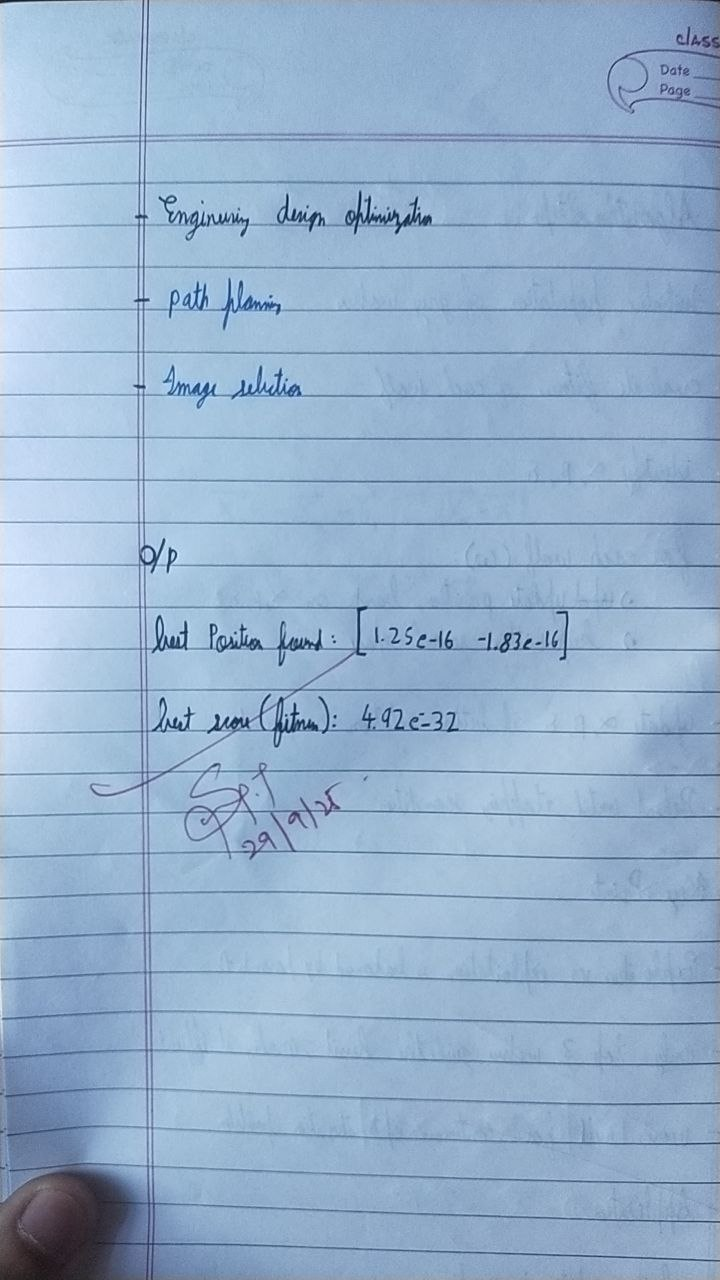 classmate
Date
Page
- Engineering design optimization
- path planning
- Image selection
O/P
best Position found: [1.25e-16 -1.83e-16]
best score (fitness): 4.92e-32
29/9/25